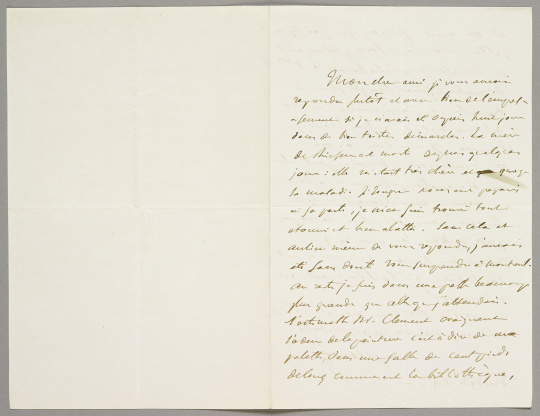 Mon cher ami je vous aurais
répondu plutôt et avec bien de l'empres-
sement si je n'avais été depuis huit jours
dans de bien tristes démarches. La mère
de est morte depuis quelques
jours : elle m'était très chère et quoique
sa maladie longue nous eut préparés
à sa perte, je m'en suis trouvé tout
étourdi et bien abattu. Sans cela et
au lieu même de vous répondre, j'aurais
été sans doute vous surprendre à
Au reste je suis dans une salle beaucoup
plus grande que celle que j'attendais.
Mr. Clement craignant
l'odeur de la peinture c'est à dire de ma
palette, dans une salle de cent pieds
de long comme est la bibliothèque,